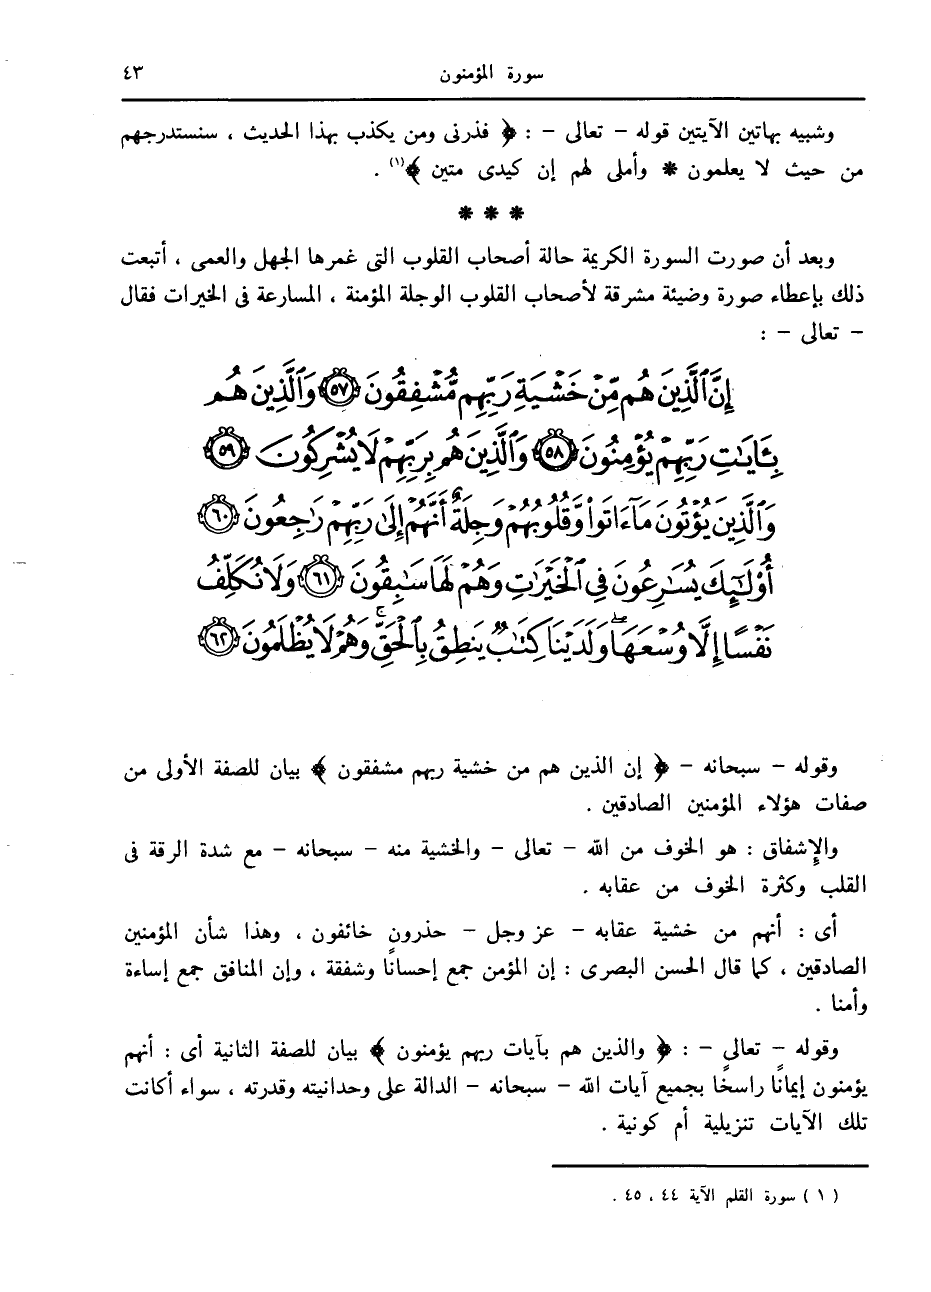 سورة المؤمنون ٤٣
وشبيه بهاتين الآيتين قوله - تعالى - : ﴿ فذرنى ومن يكذب بهذا الحديث ، سنستدرجهم
من حيث لا يعلمون * وأملى لهم إن كيدى متين ﴾(١) .
* * *
وبعد أن صورت السورة الكريمة حالة أصحاب القلوب التى غمرها الجهل والعمى ، أتبعت
ذلك بإعطاء صورة وضيئة مشرقة لأصحاب القلوب الوجلة المؤمنة ، المسارعة فى الخيرات فقال
- تعالى - :
إِنَّ ٱلَّذِينَ هُم مِّنْ خَشْيَةِ رَبِّهِم مُّشْفِقُونَ ٥٧ وَٱلَّذِينَ هُم
بِـَٔايَٰتِ رَبِّهِمْ يُؤْمِنُونَ ٥٨ وَٱلَّذِينَ هُم بِرَبِّهِمْ لَا يُشْرِكُونَ ٥٩
وَٱلَّذِينَ يُؤْتُونَ مَآ ءَاتَوا۟ وَّقُلُوبُهُمْ وَجِلَةٌ أَنَّهُمْ إِلَىٰ رَبِّهِمْ رَٰجِعُونَ ٦٠
أُو۟لَٰٓئِكَ يُسَٰرِعُونَ فِى ٱلْخَيْرَٰتِ وَهُمْ لَهَا سَٰبِقُونَ ٦١ وَلَا نُكَلِّفُ
نَفْسًا إِلَّا وُسْعَهَا ۖ وَلَدَيْنَا كِتَٰبٌ يَنطِقُ بِٱلْحَقِّ ۚ وَهُمْ لَا يُظْلَمُونَ ٦٢
وقوله - سبحانه - ﴿ إن الذين هم من خشية ربهم مشفقون ﴾ بيان للصفة الأولى من
صفات هؤلاء المؤمنين الصادقين .
والإشفاق : هو الخوف من الله - تعالى - والخشية منه - سبحانه - مع شدة الرقة فى
القلب وكثرة الخوف من عقابه .
أى : أنهم من خشية عقابه - عز وجل - حذرون خائفون ، وهذا شأن المؤمنين
الصادقين ، كما قال الحسن البصرى : إن المؤمن جمع إحسانًا وشفقة ، وإن المنافق جمع إساءة
وأمنا .
وقوله - تعالى - : ﴿ والذين هم بآيات ربهم يؤمنون ﴾ بيان للصفة الثانية أى : أنهم
يؤمنون إيمانًا راسخًا بجميع آيات الله - سبحانه - الدالة على وحدانيته وقدرته ، سواء أكانت
تلك الآيات تنزيلية أم كونية .
( ١ ) سورة القلم الآية ٤٤ ، ٤٥ .